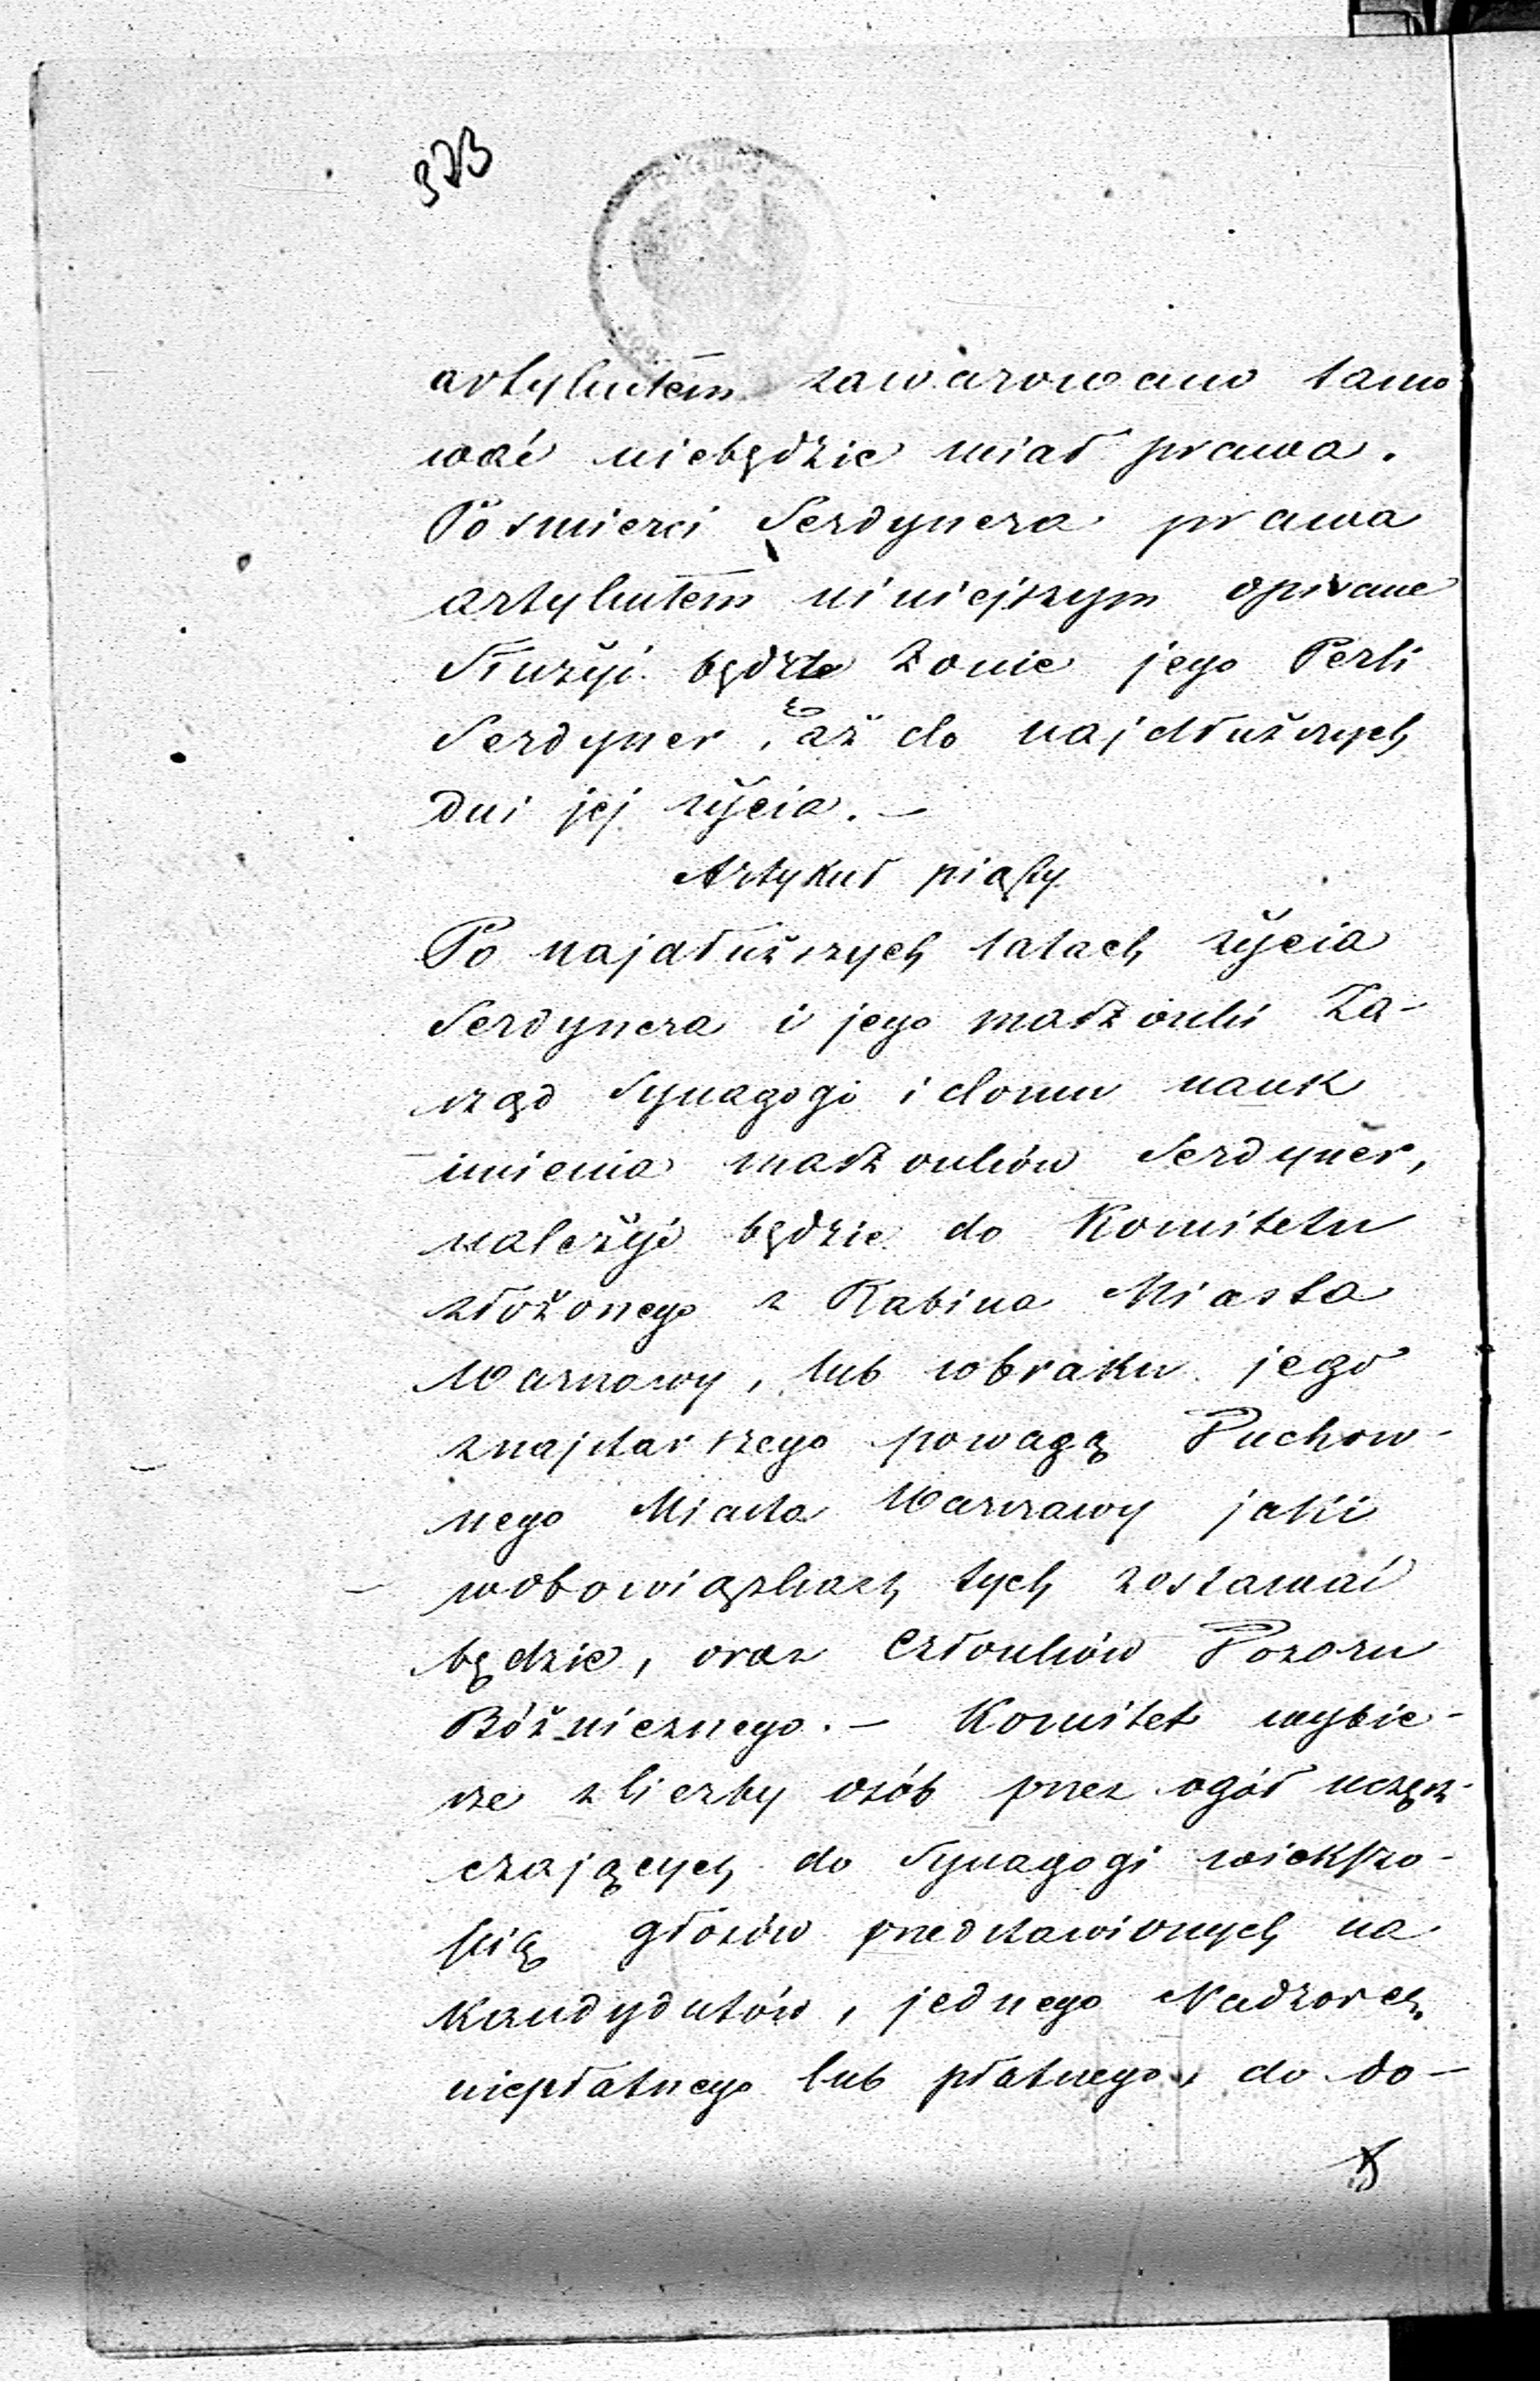 373
artykułem zawarowano tamo
wać niebędzie miał prawa.
Po śmierci Serdynera prawa
artykułem niniejszym opisane
Służyć będzie Żonie jego Perli
Serdyner, aż do najdłuższych
Dni jej życia. –
Artykuł piąty
Po najdłuższych latach życia
Serdynera i jego małżonki Za-
rząd Synagogi i domu nauk
imienia małżonków Serdyner,
należyć będzie do Komitetu
złożonego z Rabina Miasta
Warszawy, lub wbraku jego
znajstarszego powagą Duchow-
nego Miasta Warszawy jaki
wobowiązkach tych zostawać
będzie, oraz Członków Dozoru
Bóżniczego. – Komitet wybie-
rze zliczby osób przez ogół uczęsz-
czających do Synagogi większo-
ścią głosów przedstawionych na
Kandydatów, jednego Nadzorcę
niepłatnego lub płatnego, do do-